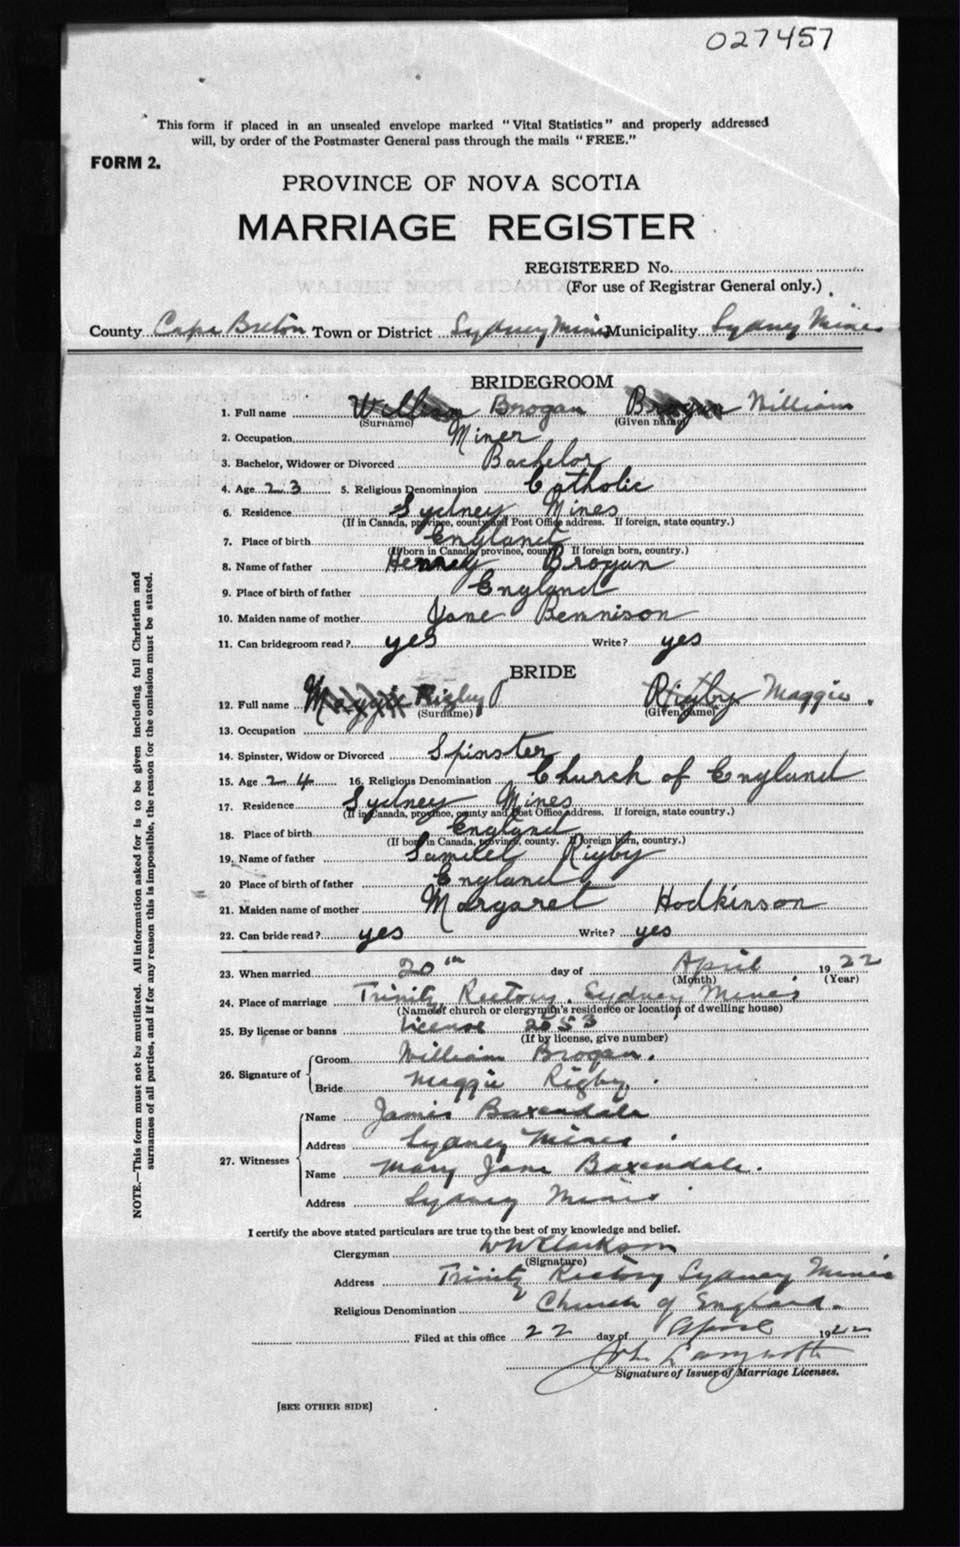 027457
This form if placed in an unsealed envelope marked "Vital Statistics" and properly addressed
will, by order of the Postmaster General pass through the mails "FREE."
FORM 2.
PROVINCE OF NOVA SCOTIA
MARRIAGE REGISTER
REGISTERED No.
(For use of Registrar General only.)
County Cape Breton Town or District Sydney Mines Municipality Sydney Mines
BRIDEGROOM
1. Full name William Brogan Brogan William
(Surname) (Given name)
2. Occupation Miner
3. Bachelor, Widower or Divorced Bachelor
4. Age 23 5. Religious Denomination Catholic
6. Residence Sydney Mines
(If in Canada, province, county and Post Office address. If foreign, state country.)
7. Place of birth England
(If born in Canada, province, county. If foreign born, country.)
8. Name of father Henry Brogan
9. Place of birth of father England
10. Maiden name of mother Jane Bennison
11. Can bridegroom read? yes Write? yes
BRIDE
12. Full name Maggie Rigby Rigby Maggie
(Surname) (Given name)
13. Occupation
14. Spinster, Widow or Divorced Spinster
15. Age 24 16. Religious Denomination Church of England
17. Residence Sydney Mines
(If in Canada, province, county and Post Office address. If foreign, state country.)
18. Place of birth England
(If born in Canada, province, county. If foreign born, country.)
19. Name of father Samuel Rigby
20 Place of birth of father England
21. Maiden name of mother Margaret Hodkinson
22. Can bride read? yes Write? yes
23. When married 20th day of April 1922
(Month) (Year)
24. Place of marriage Trinity Rectory, Sydney Mines
(Name of church or clergyman's residence or location of dwelling house)
25. By license or banns license 2053
(If by license, give number)
26. Signature of
Groom William Brogan.
Bride Maggie Rigby.
27. Witnesses
Name James Baxendale
Address Sydney Mines
Name Mary Jane Baxendale.
Address Sydney Mines
I certify the above stated particulars are true to the best of my knowledge and belief.
Clergyman W W Clarkson
(Signature)
Address Trinity Rectory Sydney Mines
Religious Denomination Church of England.
Filed at this office 22 day of April 1922
John Langworth
Signature of Issuer of Marriage Licenses.
[SEE OTHER SIDE]
NOTE.—This form must not be mutilated. All information asked for is to be given including full Christian and
surnames of all parties, and if for any reason this is impossible, the reason for the omission must be stated.